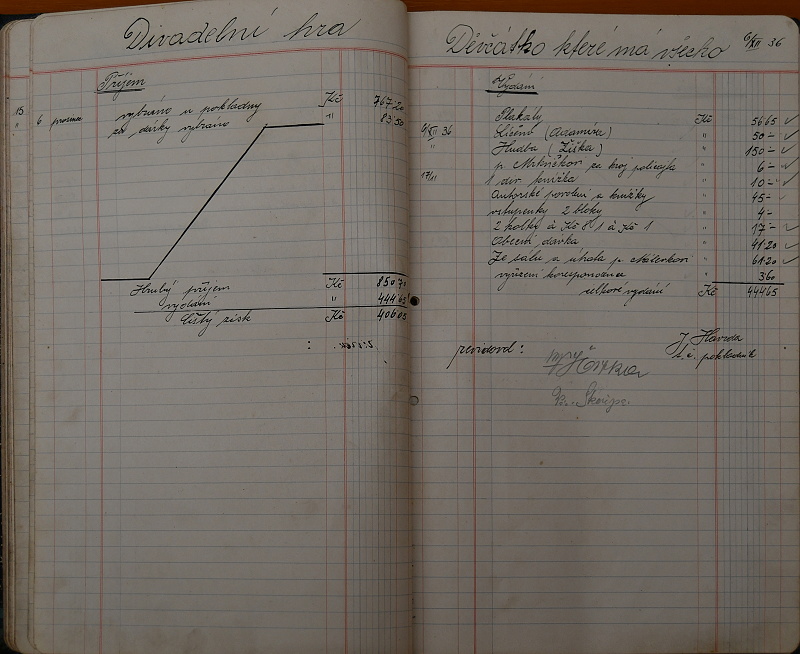 Divadelní hra
Příjem
15 6 prosince vybráno u pokladny Kč 767 20
" za dárky vybráno " 83 50
Hrubý příjem Kč 850 70
vydání " 444 65
čistý zisk Kč 406 05
Děvčátko které má všecko 6/XII 36
Vydání
Plakáty Kč 56 65
6/XII 36 Líčení (Adamíra) " 50 -
" Hudba (Žižka) " 150 -
p. za kroj policajta " 6 -
17/11 1 div. knížka " 10 -
Autorské povolení a knížky " 45 -
vstupenky 2 bloky " 4 -
2 kolky á Kč 8 1 á Kč 1 " 17 -
Obecní dávka " 41 20
Ze sálu a úhola p. " 61 20
vyřízení korespondence " 3 60
celkové vydání Kč 444 65
revidoval:
J. Havrda
t.č. pokladník